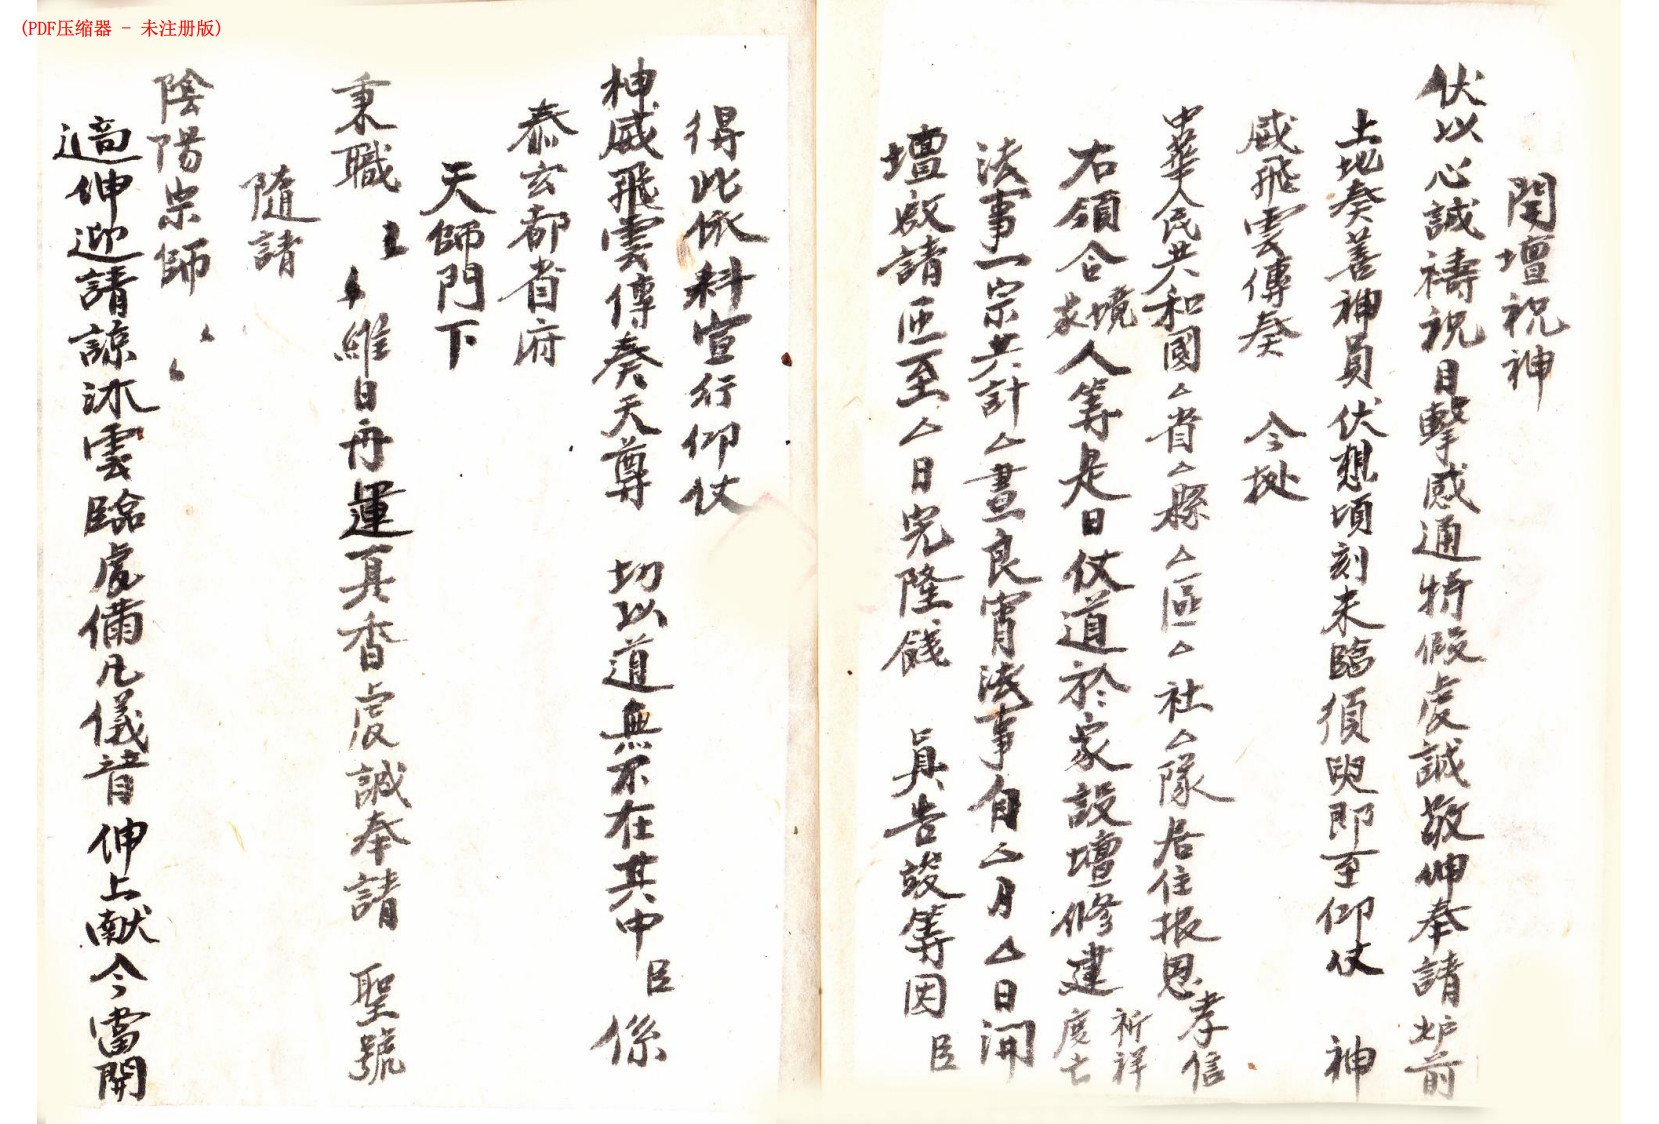 (PDF压缩器 - 未注册版)
開壇祝神
伏以心誠禱祝目擊感通特假虔誠敬伸奉請炉前
土地奏善神員伏想頃刻來臨須臾即至仰仗 神
威飛雲傳奏 今据
中華人民共和國△省△縣△區△社△隊居住报恩孝信
右領合境求人等是日仗道於家設壇修建祈祥度亡
法事一宗共計△晝良宵法事自△月△日開
壇啟請 至△日完隆餞 具告竣等因 臣
得此依科宣行仰仗
神威飛雲傳奏天尊 切以道無不在其中 臣 係
泰玄都省府
天師門下
秉職 維日再運真香虔誠奉請 聖號
隨請
陰陽宗師
適伸迎請諒沐雲臨處備凡儀昔伸上献今當開